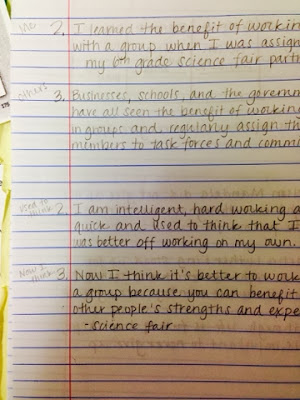 No 2. I learned the benefit of workin
with a group when I was assign
my 6th grade science fair part
Others 3. Businesses, schools, and the governm
have all seen the benefit of workin
in groups and regularly assign th
members to task forces and commi
Used to think 2. I am intelligent, hard working a
quick and used to think that I
was better off working on my own.
Now I think 3. Now I think it's better to work
a group because you can benefit
other people's strengths and expe
- science fair